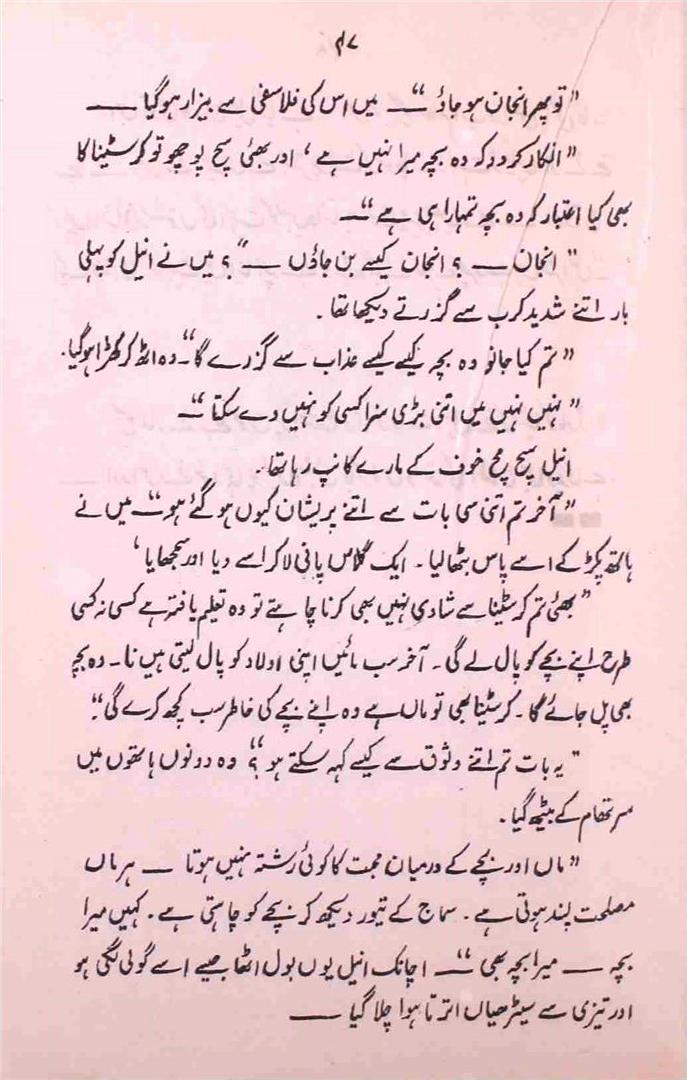 ۴۷
" تو پھر انجان ہو جاؤ "۔ میں اس کی فلاسفی سے بیزار ہو گیا ——
" انکار کر دو کہ وہ بچہ میرا نہیں ہے ، اور بھئی سچ پوچھو تو کرسٹینا کا
بھی کیا اعتبار کہ وہ بچہ تمہارا ہی ہے "۔
" انجان —— ؟ انجان کیسے بن جاؤں —— " ؟ میں نے انیل کو پہلی
بار اتنے شدید کرب سے گزرتے دیکھا تھا ۔
" تم کیا جانو وہ بچہ کیسے کیسے عذاب سے گزرے گا "۔ وہ اٹھ کر کھڑا ہو گیا۔
" نہیں نہیں میں اتنی بڑی سزا کسی کو نہیں دے سکتا "۔
انیل سچ مچ خوف کے مارے کانپ رہا تھا ۔
" آخر تم اتنی سی بات سے اتنے پریشان کیوں ہو گئے ہو "۔ میں نے
ہاتھ پکڑ کے اسے پاس بٹھا لیا ۔ ایک گلاس پانی لا کر اسے دیا اور سمجھایا ،
" بھئی تم کرسٹینا سے شادی نہیں بھی کرنا چاہتے تو وہ تعلیم یافتہ ہے کسی نہ کسی
طرح اپنے بچے کو پال لے گی ۔ آخر سب مائیں اپنی اولاد کو پال لیتی ہیں نا ۔ وہ بچہ
بھی پل جائے گا ۔ کرسٹینا بھی تو ماں ہے وہ اپنے بچے کی خاطر سب کچھ کرے گی "۔
" یہ بات تم اتنے وثوق سے کیسے کہہ سکتے ہو ؟ " وہ دونوں ہاتھوں میں
سر تھام کے بیٹھ گیا ۔
" ماں اور بچے کے درمیان محبت کا کوئی رشتہ نہیں ہوتا —— ہر ماں
مصلحت پسند ہوتی ہے ۔ سماج کے تیور دیکھ کر بچے کو چاہتی ہے ۔ کہیں میرا
بچہ —— میرا بچہ بھی "۔ اچانک انیل یوں بول اٹھا جیسے اسے گولی لگی ہو
اور تیزی سے سیڑھیاں اترتا ہوا چلا گیا ——